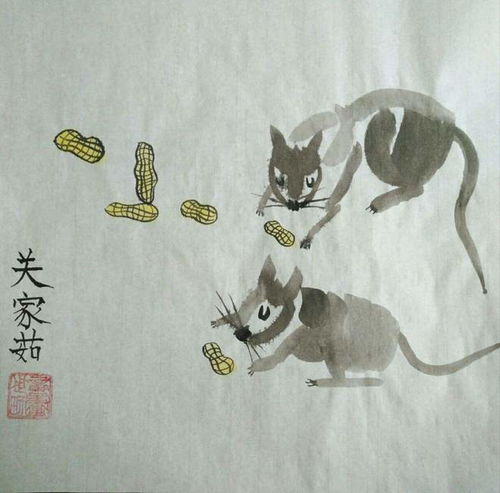 关家茹